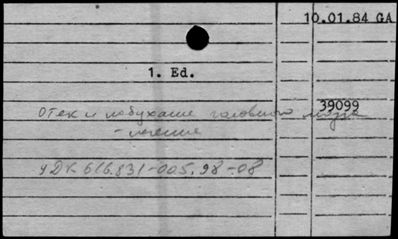 10.01.84 GA
1. Ed.
39099
Отек и набухание головного мозга
- лечение
УДК 616.831-005.98-08